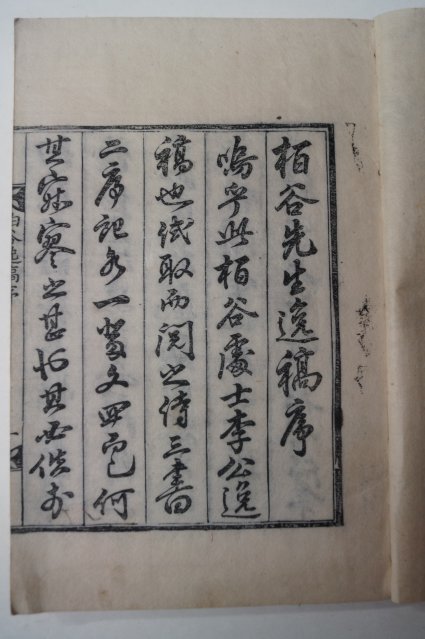 栢谷先生逸稿序
嗚乎此栢谷處士李公逸
稿也試取而閱之詩三書
二序記各一文四何
其寂寥之甚其必佚於